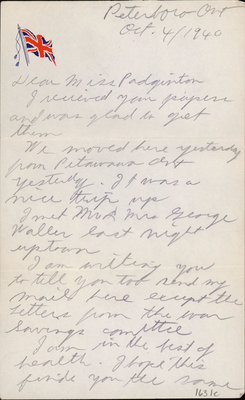 Peterboro Ont
Oct. 4/1940
Dear Miss Padginton
I recieved your papers
and was glad to get
them
We moved here yesterday
from Petawawa Ont
yesterdy. It was a
nice trip up
I met Mr & Mrs George
Waller last night
uptown
I am writting you
to tell you too send my
mail here except the
letters from the war
savings committee
I am in the best of
health. I hope this
finds you the same
1631c